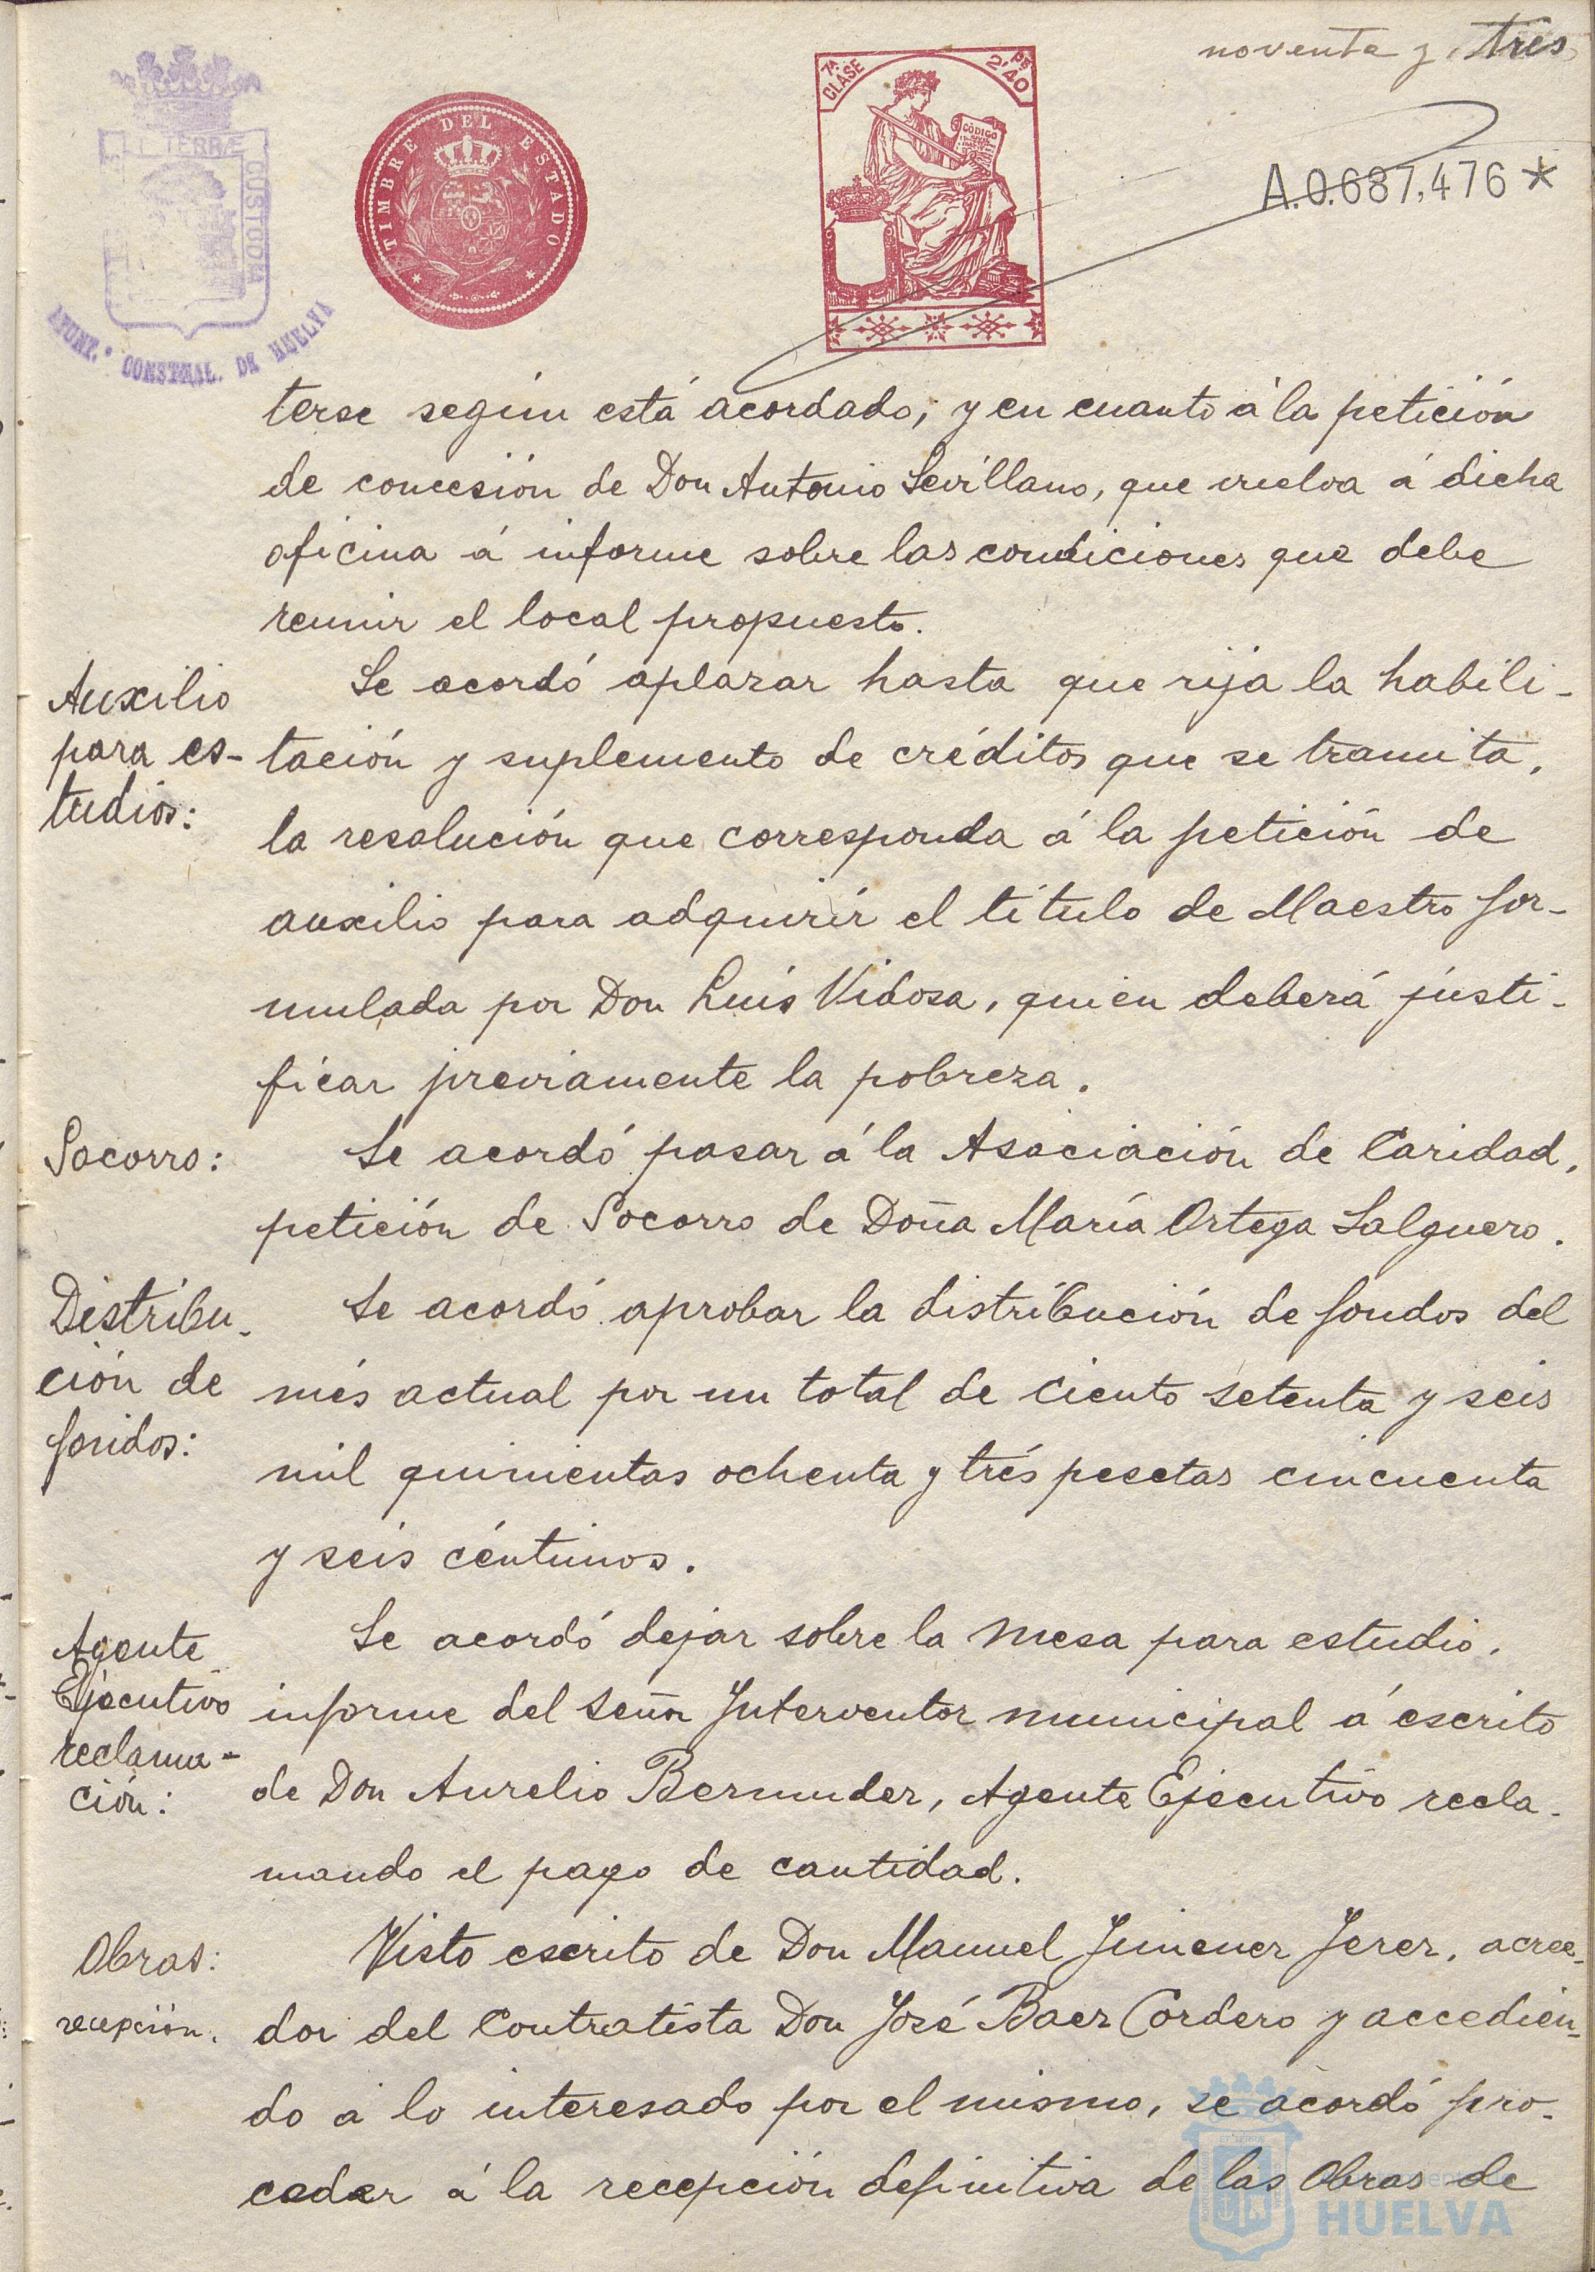 noventa y tres
7ª CLASE
2'40 Ps
CÓDIGO
TIMBRE DEL ESTADO
TERRÆ CUSTODIA
AYUNT.º CONSTNAL. DE HUELVA
A.0.687,476*
terse según está acordado; y en cuanto á la petición
de concesión de Don Antonio Sevillano, que vuelva á dicha
oficina á informe sobre las condiciones que debe
reunir el local propuesto.
Auxilio
para es-
tudios:
Se acordó aplazar hasta que rija la habili-
tación y suplemento de créditos que se tramita,
la resolución que corresponda á la petición de
auxilio para adquirir el título de Maestro for-
mulada por Don Luis Vidosa, quien deberá justi-
ficar previamente la pobreza.
Socorro:
Se acordó pasar á la Asociación de Caridad,
petición de Socorro de Doña María Ortega Salguero.
Distribu-
ción de
fondos:
Se acordó aprobar la distribución de fondos del
més actual por un total de ciento setenta y seis
mil quinientas ochenta y trés pesetas cincuenta
y seis céntimos.
Agente
Ejecutivo
reclama-
ción:
Se acordó dejar sobre la mesa para estudio,
informe del Señor Interventor municipal á escrito
de Don Aurelio Bermudez, Agente Ejecutivo recla-
mando el pago de cantidad.
Obras:
recepción.
Visto escrito de Don Manuel Jimenez Jerez, acree-
dor del Contratista Don José Baez Cordero y accedien-
do á lo interesado por el mismo, se acordó pro-
ceder á la recepción definitiva de las Obras de
HUELVA